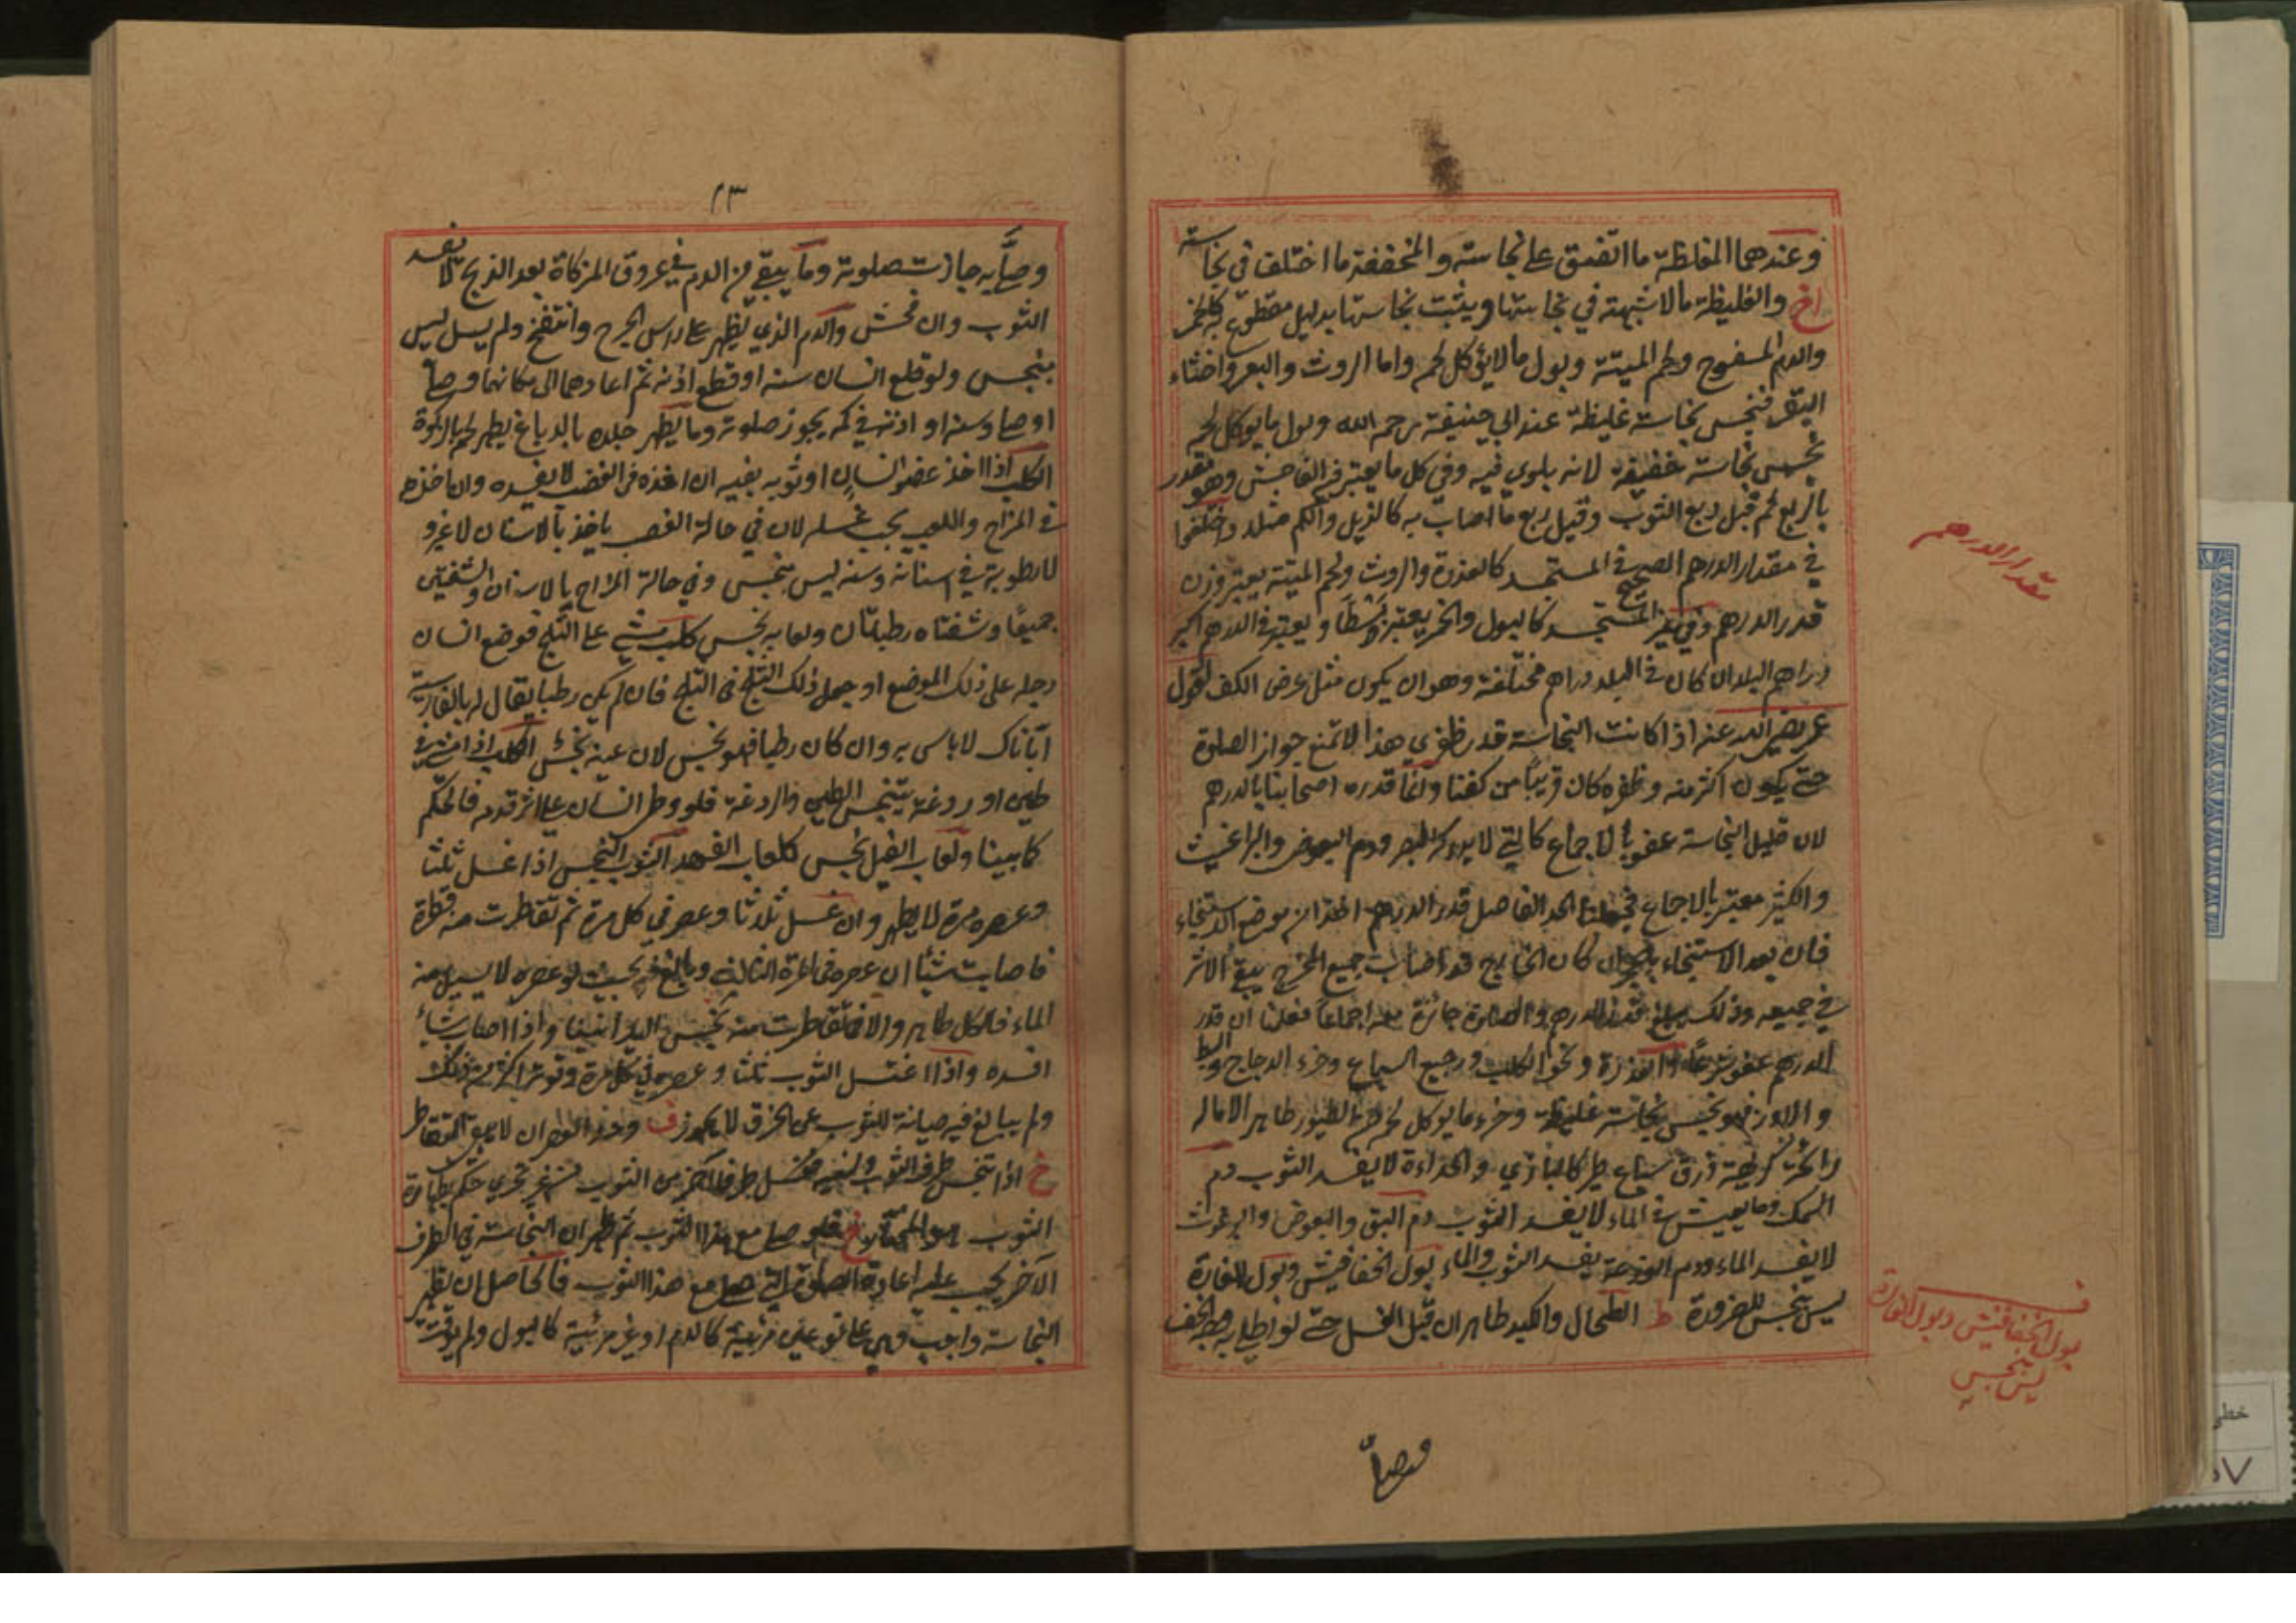 وعندهما المغلظة ما اتفق على نجاسته والمخففة ما اختلف في نجاسته
اخ والغليظة ما لا شبهة في نجاستها ويثبت نجاستها بدليل مقطوع به كالخمر
والدم المسفوح ولحم الميتة وبول ما لا يؤكل لحمه واما الروث والبعر واخثاء
البقر فنجس نجاسة غليظة عند ابي حنيفة رحمه الله وبول ما يؤكل لحمه
نجس نجاسة خفيفة لانه بلوي فيه وفي كل ما يعتبر فيه الفاحش وهو مقدر
بالربع ثم قيل ربع الثوب وقيل ربع ما اصاب به كالذيل والكم مثلا واختلفوا
في مقدار الدرهم الصحيح في المستجسد كالعذرة والروث ولحم الميتة يعتبر وزن
قدر الدرهم وفي غير المستجسد كالبول والخمر يعتبر بسطا ويعتبر في الدرهم اكبر
دراهم البلد ان كان في البلد دراهم مختلفة وهو ان يكون مثل عرض الكف لقول
عمر رضي الله عنه اذا كانت النجاسة قدر ظفري هذا لا تمنع جواز الصلوة
حتى يكون اكثر منه وظفره كان قريبا من كفنا وانما قدره اصحابنا بالدرهم
لان قليل النجاسة عفو بالاجماع كالتي لا يدركه البصر ودم البعوض والبراغيث
والكثير معتبر بالاجماع فجعلنا الحد الفاصل قدر الدرهم اخذا من موضع الاستنجاء
فان بعد الاستنجاء بالحجر ان كان الخارج قد اصاب جميع المخرج يبقى الاثر
في جميعه وذلك يبلغ قدر الدرهم والصلوة جائزة معه اجماعا فعلمنا ان قدر
الدرهم عفو شرعا والعذرة ونحو الكلب ورجيع السباع وخرء الدجاج والبط
والاوز فهو نجس نجاسة غليظة وخرء ما يؤكل لحمه من الطيور طاهر الا ماله
رائحة كريهة ذرق سباع طير كالبازي والحداءة لا يفسد الثوب دم
السمك وما يعيش في الماء لا يفسد الثوب دم البق والبعوض والبرغوث
لا يفسد الماء ودم الوزغة يفسد الثوب والماء بول الخفافيش وبول الفارة
ليس بنجس للضرورة ط الطحال والكبد طاهران قبل الغسل حتى لو اطلي به وجه الخف
مقدار الدرهم
ف
بول الخفافيش وبول الفارة
ليس بنجس
وصلى
٢٣
وصلى به جازت صلوته وما يبقى من الدم في عروق المزكاة بعد الذبح لا يفسد
الثوب وان فحش والدم الذي يظهر على راس الجرح وانتفخ ولم يسل ليس
بنجس ولو قلع انسان سنه او قطع اذنه ثم اعادهما الى مكانهما وصلى
او صلى وسنه او اذنه في كمه يجوز صلوته وما يطهر جلده بالدباغ يطهر لحمه بالزكوة
الكلب اذا اخذ عضو انسان او ثوبه بفيه ان اخذه في الغضب لا يفسده وان اخذه
في المزاح واللعب يجب غسله لان في حالة الغضب ياخذ بالاسنان لا غير و
لا رطوبة في اسنانه وسنه ليس بنجس وفي حالة المزاح بالاسنان والشفتين
جميعا وشفتاه رطبتان ولعابه نجس كلب مشي على الثلج فوضع انسان
رجله على ذلك الموضع او جعل ذلك الثلج في الثلج فان لم يكن رطبا يقال له بالفارسية
لا باس به وان كان رطبا فهو نجس لان عينه نجس الكلب اذا مشي في
طين او روغة يتنجس الطين والردغة فلو وطئ انسان على اثر قدمه فالحكم
كما بينا ولعاب الفيل نجس كلعاب الفهد الثوب النجس اذا غسل ثلثا
وعصره مرة لا يطهر وان غسل ثلاثا وعصر في كل مرة ثم تقاطرت منه قطرة
فاصابت شيئا ان عصره في المرة الثالثة وبالغ فيه بحيث لو عصره لا يسيل منه
الماء فالكل طاهر والا فما تقاطرت منه نجس واذا اصاب شيئا
افسده واذا اغتسل الثوب ثلثا وعصره في كل مرة وقوته اكثر من ذلك
ولم يبالغ فيه صيانة للثوب عن الخرق لا يجوز ف
خ اذا تنجس طرف الثوب ونسيه فغسل طرفا آخر من الثوب من غير تحري حكم بطهارة
الثوب هو المختار خ فلو صلى مع هذا الثوب ثم ظهر ان النجاسة في الطرف
الآخر يجب عليه اعادة الصلوة التي صلى مع هذا الثوب فالحاصل ان تطهير
النجاسة واجب وهي على نوعين مرئية كالدم او غير مرئية كالبول ولم يوقت
خطي